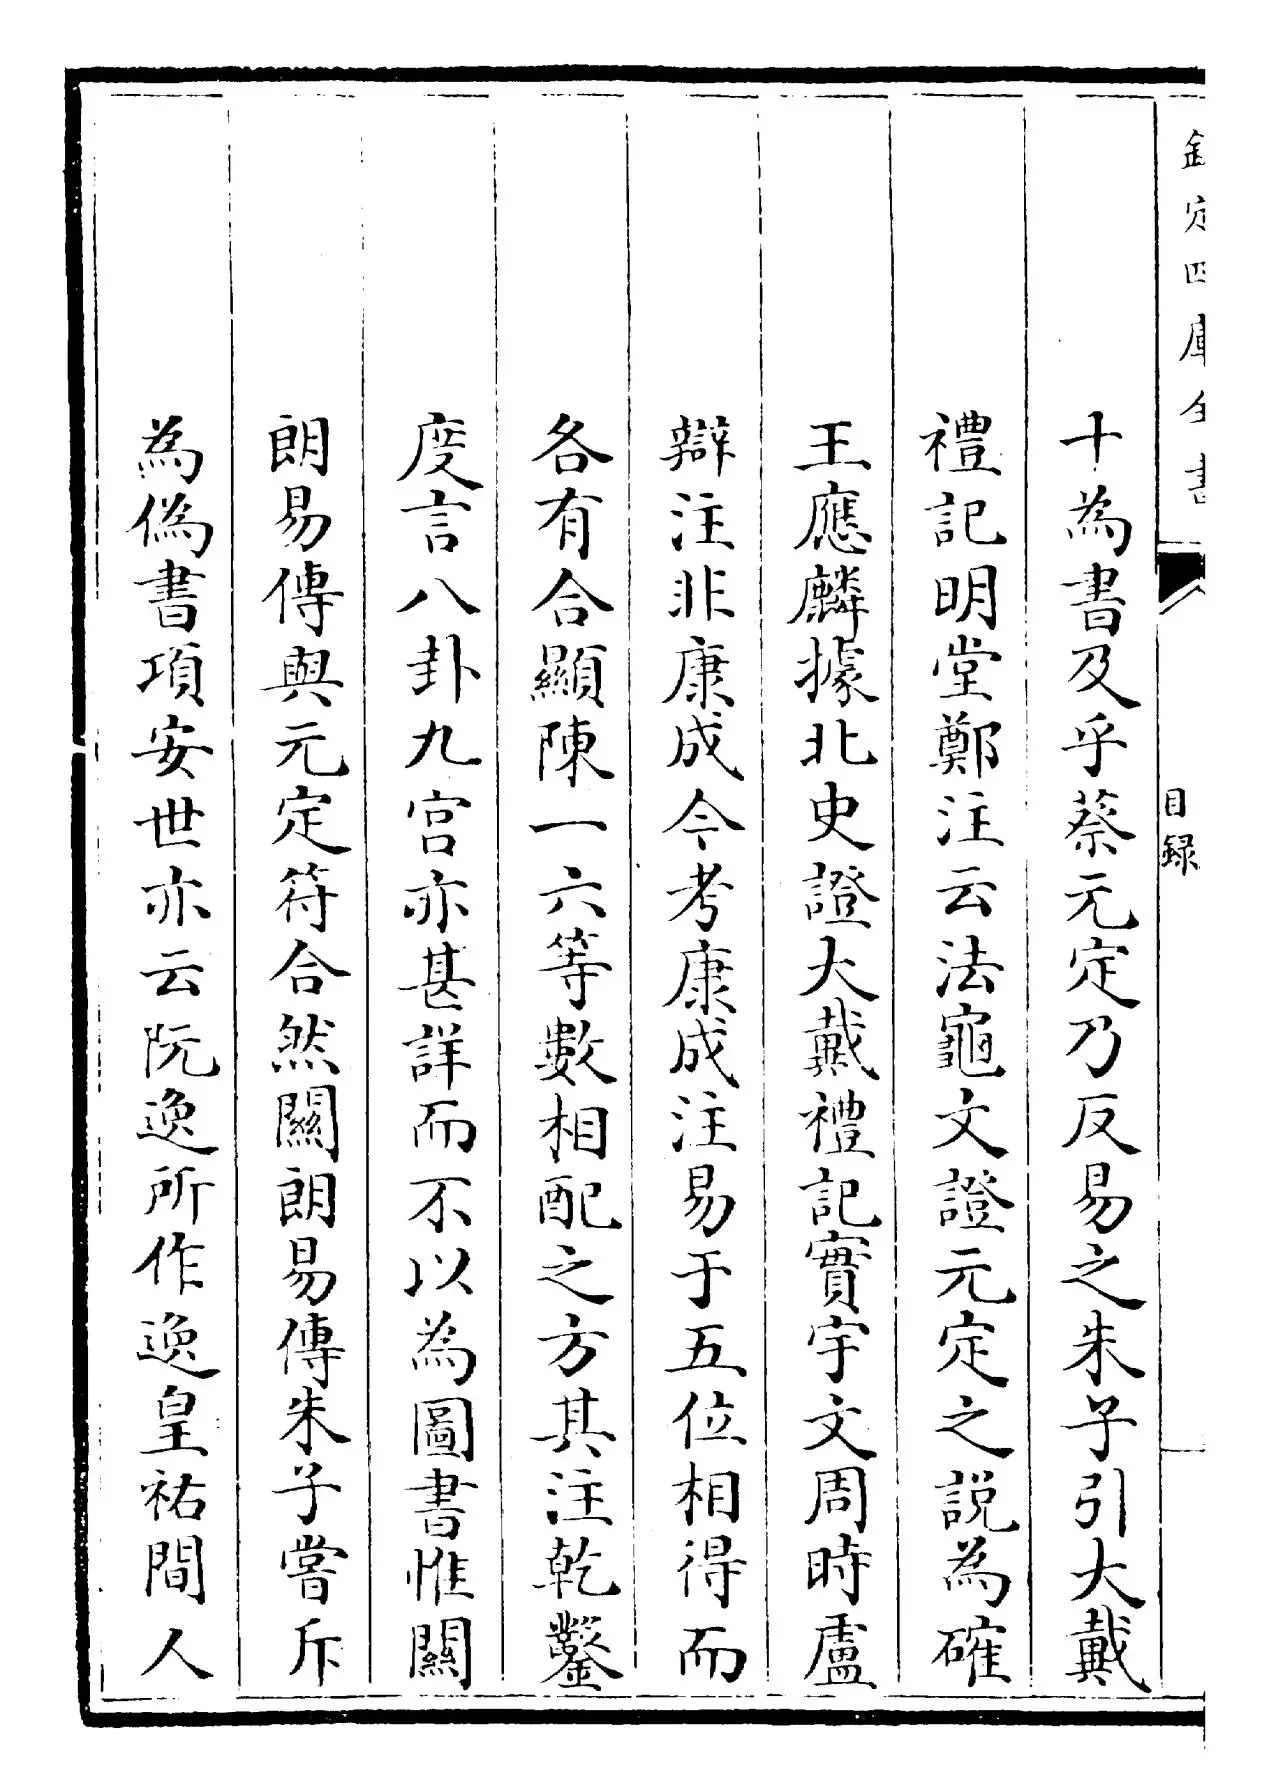 欽定四庫全書
目録
十為書及乎蔡元定乃反易之朱子引大戴
禮記明堂鄭注云法龜文證元定之説為確
王應麟據北史證大戴禮記實宇文周時盧
辯注非康成今考康成注易于五位相得而
各有合顯陳一六等數相配之方其注乾鑿
度言八卦九宮亦甚詳而不以為圖書惟關
朗易傳與元定符合然關朗易傳朱子嘗斥
為偽書項安世亦云阮逸所作逸皇祐間人